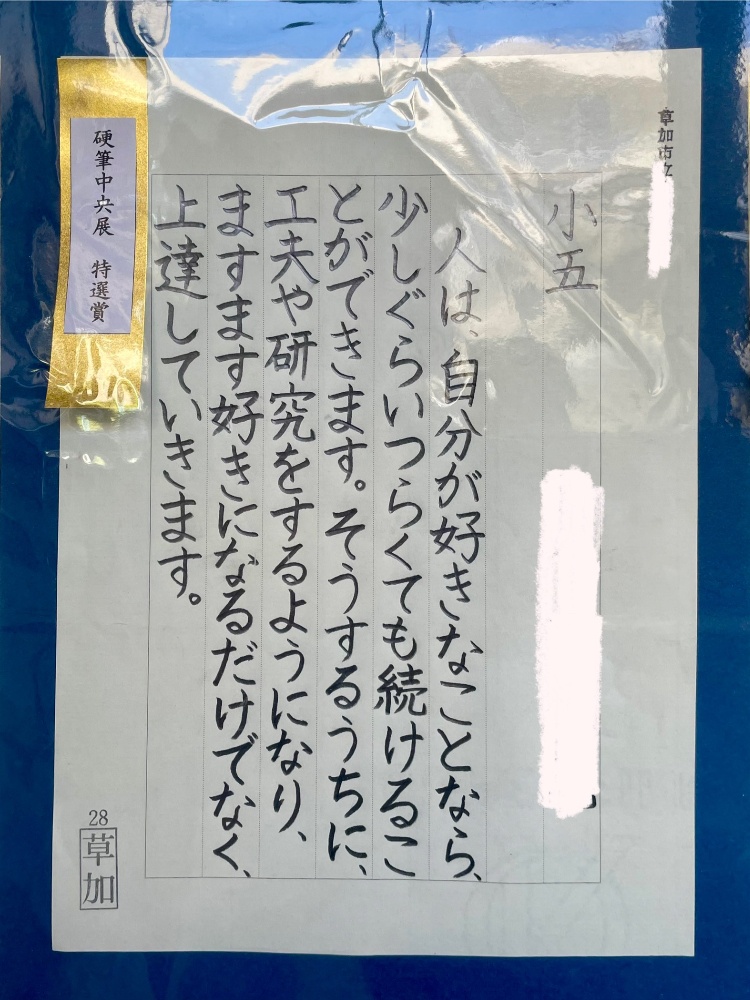 草加市立
小五
人は、自分が好きなことなら、
少しぐらいつらくても続けるこ
とができます。そうするうちに、
工夫や研究をするようになり、
ますます好きになるだけでなく、
上達していきます。
硬筆中央展　特選賞
28
草加